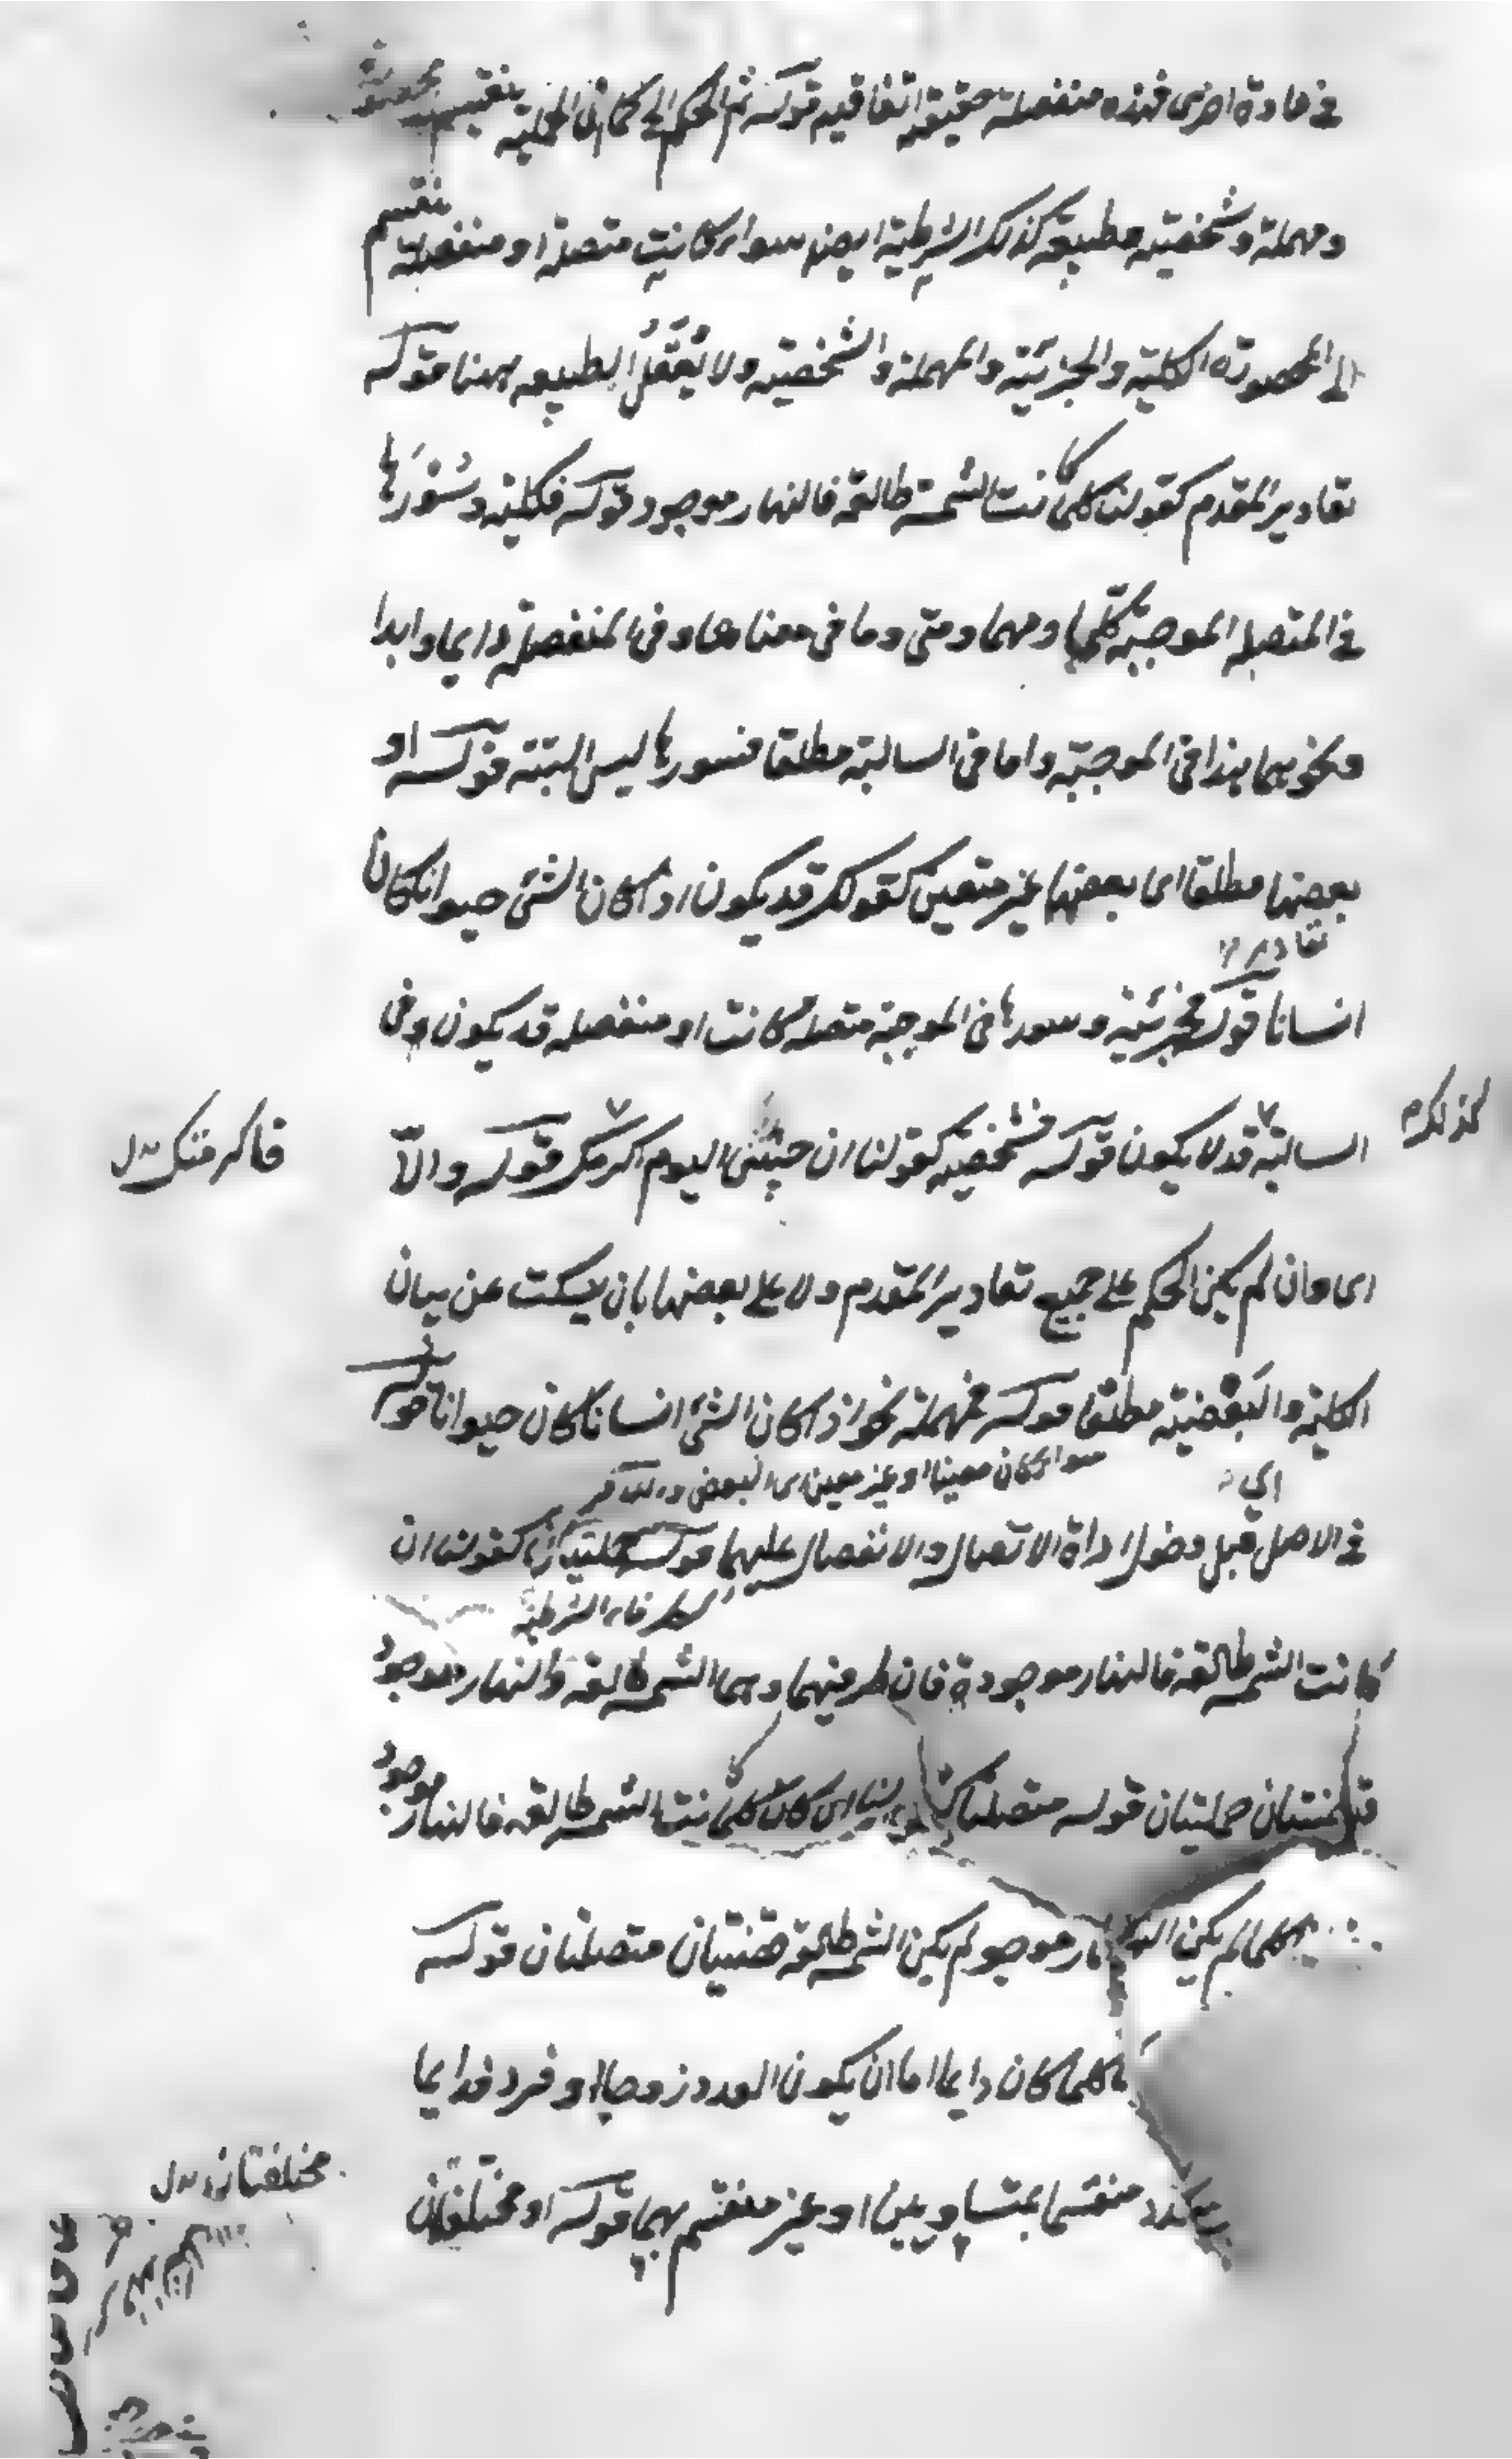 في مادة اخرى فهذه منفصلة حقيقة اتفاقيه قوله ثم الحكم الخ كما ان الحملية تنقسم
ومهملة وشخصيته وطبيعة كذلك الشرطية ايضا سواء كانت متصلة او منفصلة تنقسم
الى المحصورة الكلية والجزئية والمهملة والشخصيته ولا تعقل الطبيعه ههنا قوله
تقادير المقدم كقولنا كلما كانت الشمس طالعة فالنهار موجود قوله فكلية وسورها
في المتصله الموجبة كلما ومهما ومتى وما في معناها وفي المنفصلة دايما وابدا
ونحوهما هذا في الموجبة واما في السالبة مطلقا فسورها ليس البتة قوله او
بعضها مطلقا اى بعضها غير متعين كقولك قد يكون اذا كان الشئ حيوانا كان
تقادير
انسانا قوله فجزئية وسورها في الموجبة متصله كانت او منفصله قد يكون وفي
كذلك
السالبة قد لا يكون قوله فشخصيه كقولنا ان جئتنى اليوم اكرمتك قوله والا
فاكرمتك بدل
اى وان لم يكن الحكم على جميع تقادير المقدم ولا على بعضها بان يسكت عن بيان
الكلية والبعضية مطلقا قوله فمهملة نحو اذا كان الشئ انسانا كان حيوانا قوله
سواء كان معينا او غير معين اى البعض
اي
في الاصل قبل دخول اداة الاتصال والانفصال عليهما قوله حمليتان كقولنا ان
طرفا الشرطية
كانت الشمس طالعة فالنهار موجودة فان طرفيهما وهما الشمس طالعة والنهار موجود
قضيتان حمليتان قوله متصلتان كقولنا ان كان كلما كانت الشمس طالعه فالنهار موجود
فكلما لم يكن النهار موجود لم يكن الشمس طالعة قضيتان متصلتان قوله
كلما كان دايما اما ان يكون العدد زوجا او فرد فدايما
منقسما بمتساويين او غير منقسم بهما قوله او مختلفان
مختلفتان بدل